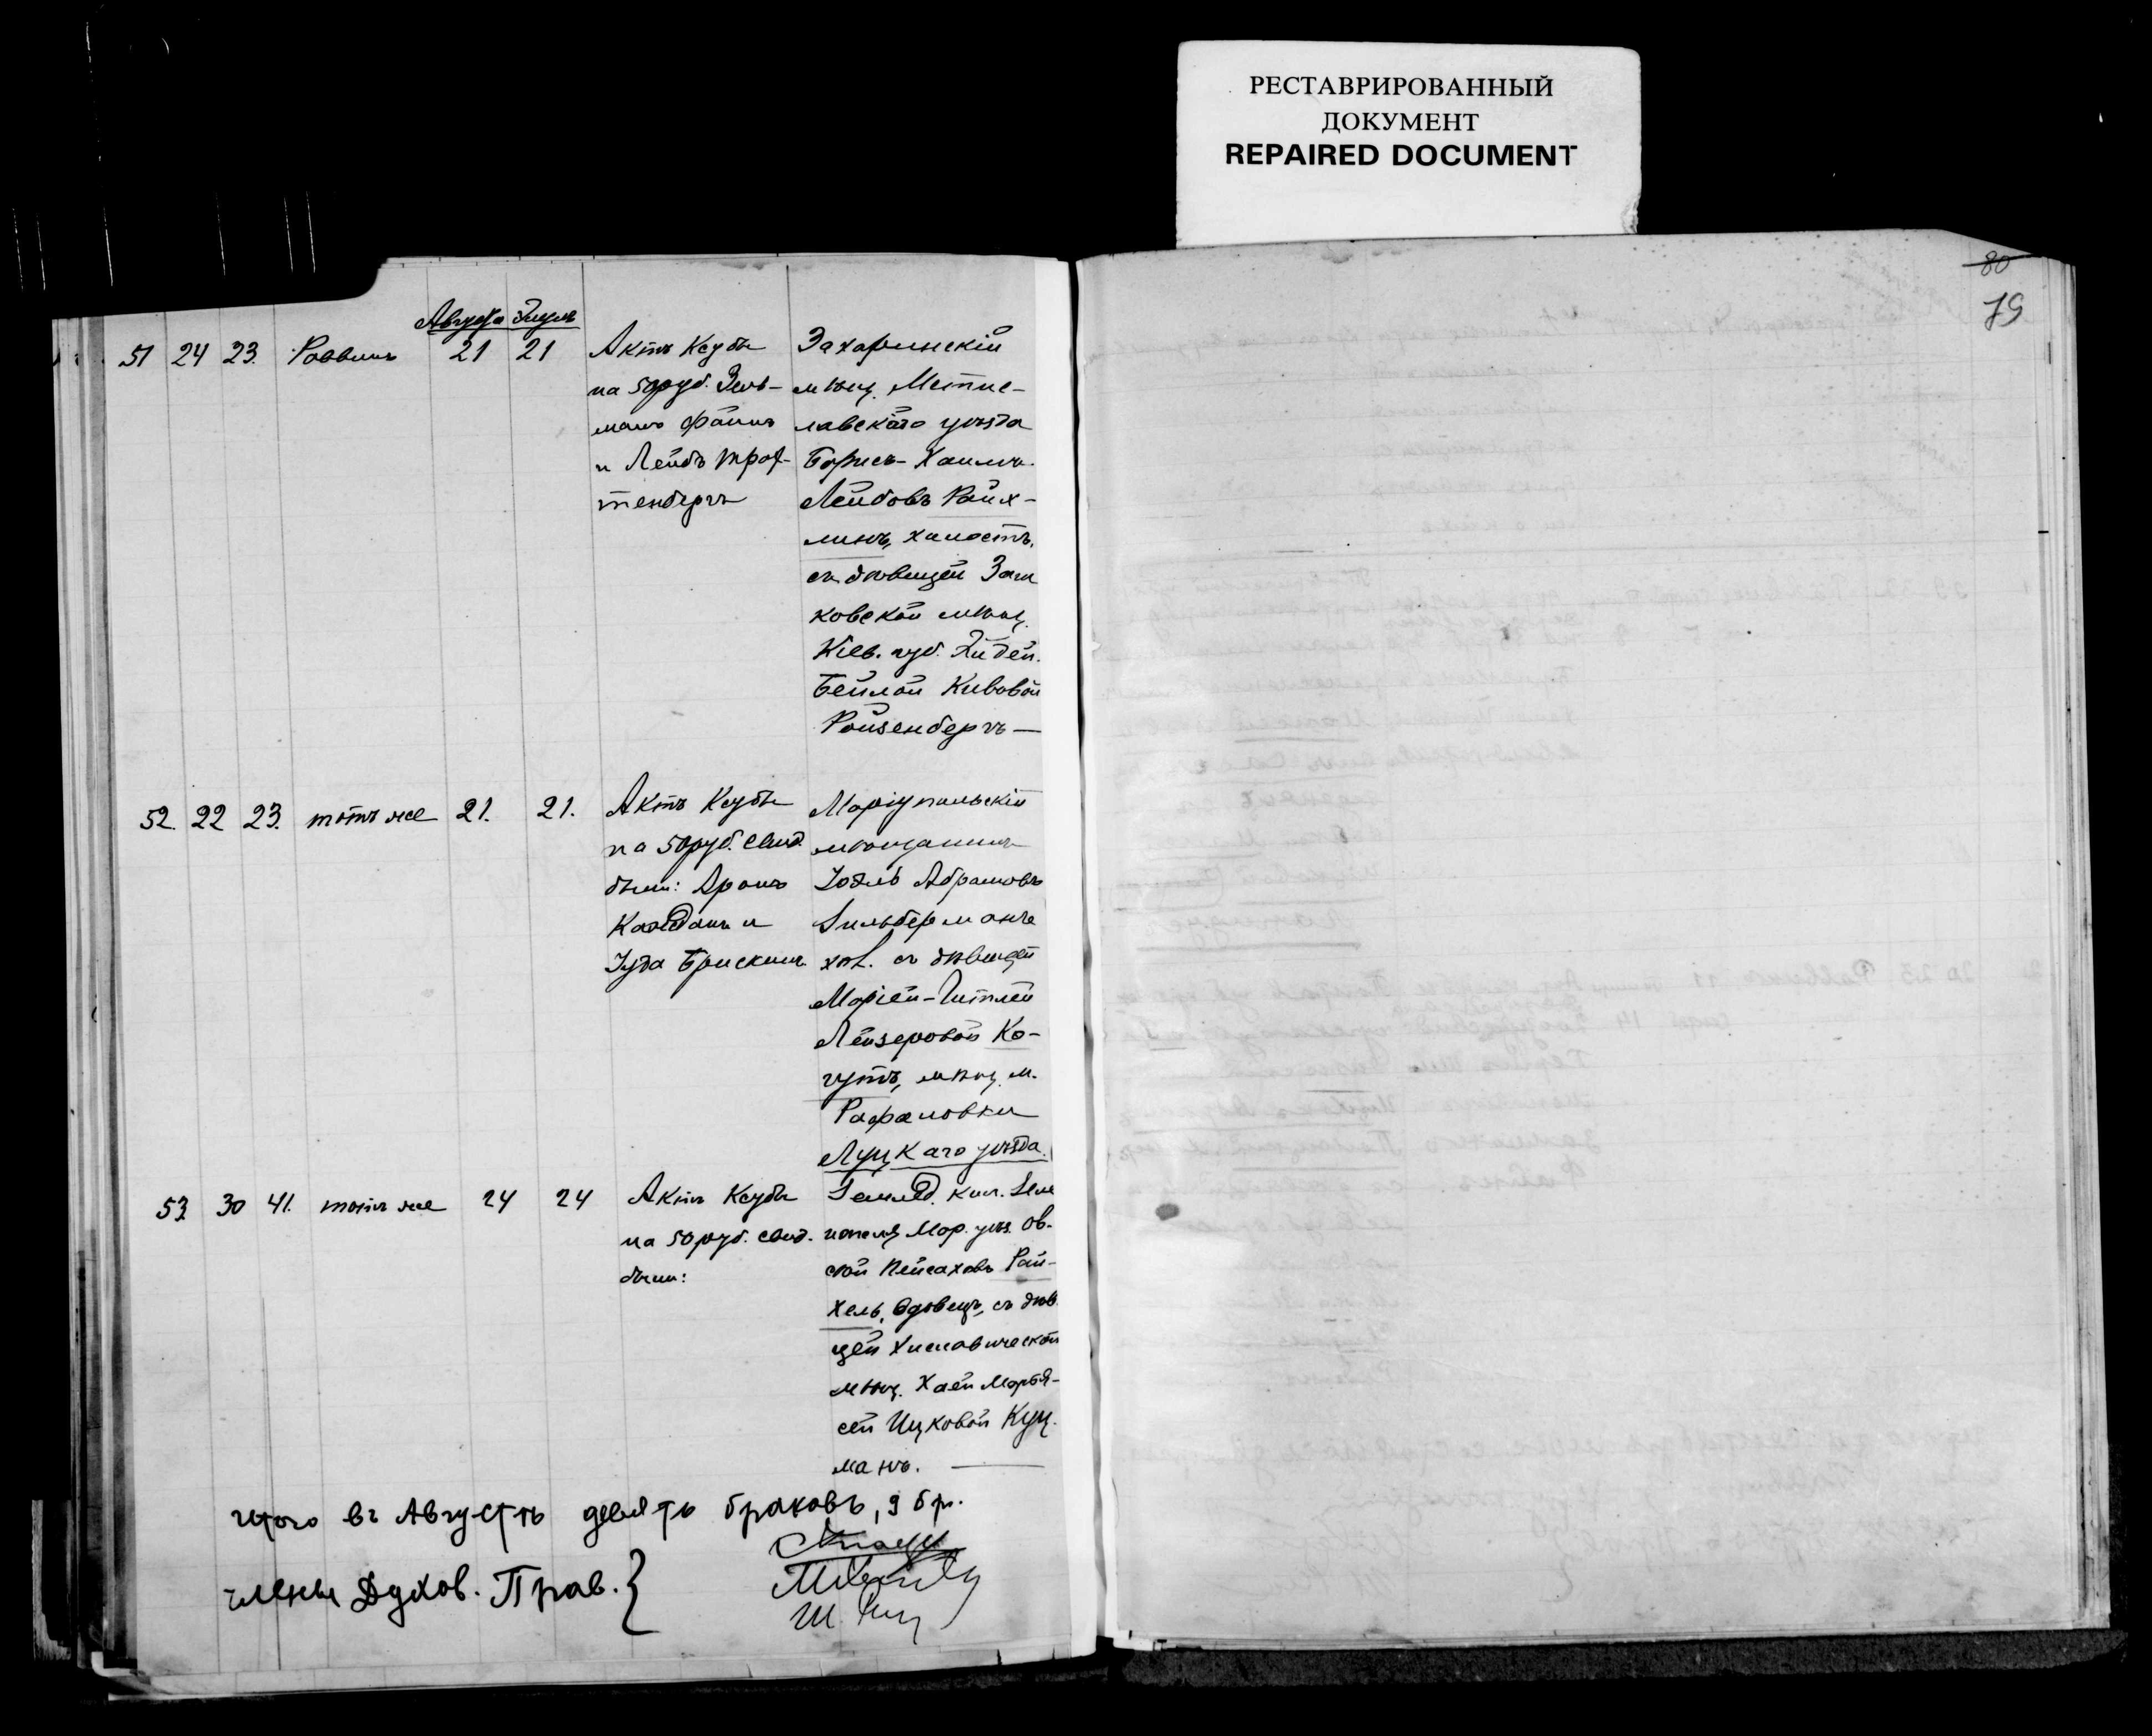 РЕСТАВРИРОВАННЫЙ
ДОКУМЕНТ
REPAIRED DOCUMENT
80
79
Августа Элулъ
51 24 23. Раввинъ 21 21
Актъ Ксубы
на 50 руб. Зель-
манъ Файнъ
и Лейбъ Трах-
тенбергъ
Захаринскій
мѣщ. Мстис-
лавскаго уѣзда
Борисъ-Хаимъ.
Лейбовъ Райх-
линъ, холостъ,
съ дѣвицей
ковской мѣщ.
Кіев. губ.
Бейлой Кивовой
Ройзенбергъ —
52. 22 23. тотъ же 21. 21.
Актъ Ксубы
на 50 руб. свид.
были: Аронъ
и
Іуда Брискинъ
Маріупольскій
мѣщанинъ
Іоэль Абрамовъ
Зильберманъ
хол. съ дѣвицей
Маріей-Гитлей
Лейзеровой Ко-
гутъ, мѣщ. м.
Рафаловки
Луцкаго уѣзда.
53. 30 41. тотъ же 24 24
Актъ Ксубы
на 50 руб. свид.
были:
Землед. кол.
Мар. уѣз. Ов-
сей Пейсаховъ Рай-
хель, вдовецъ, съ дѣв.
цей Хиславической
мѣщ. Хаей
сей Ицковой Куц-
манъ. —
Итого въ Августѣ девять браковъ, 9 бр.
Члены Духов. Прав. }